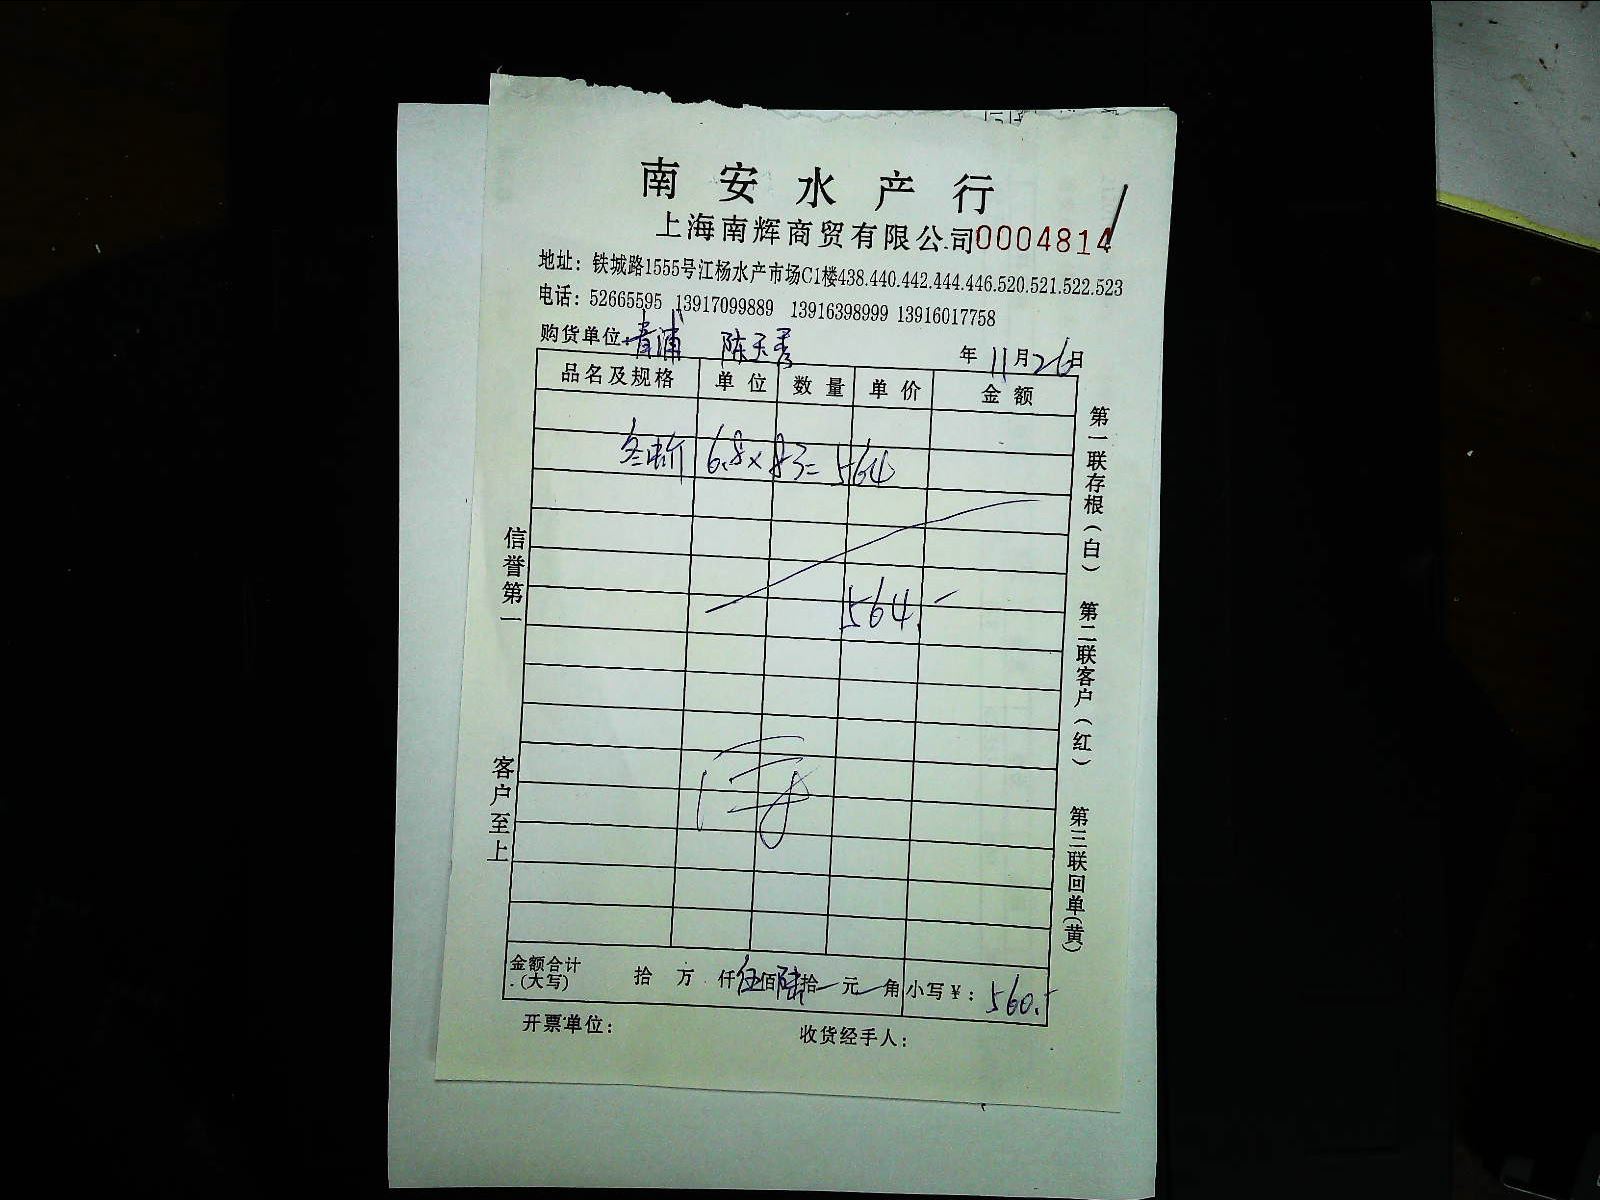 南安水产行
上海南辉商贸有限公司 0004814
地址：铁城路1555号江杨水产市场C1楼438.440.442.444.446.520.521.522.523
电话：52665595 13917099889 13916398999 13916017758
购货单位 青浦 陈玉秀 年 11月26日
品名及规格 单位 数量 单价 金额
6.8×83=564
564.
金额合计(大写) 拾 万 仟 伍佰陆拾 元 角 小写￥：560.-
开票单位： 收货经手人：
信誉第一
客户至上
第一联存根(白)
第二联客户(红)
第三联回单(黄)